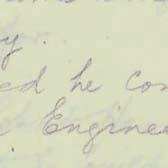 y.
ed he con
Enginee